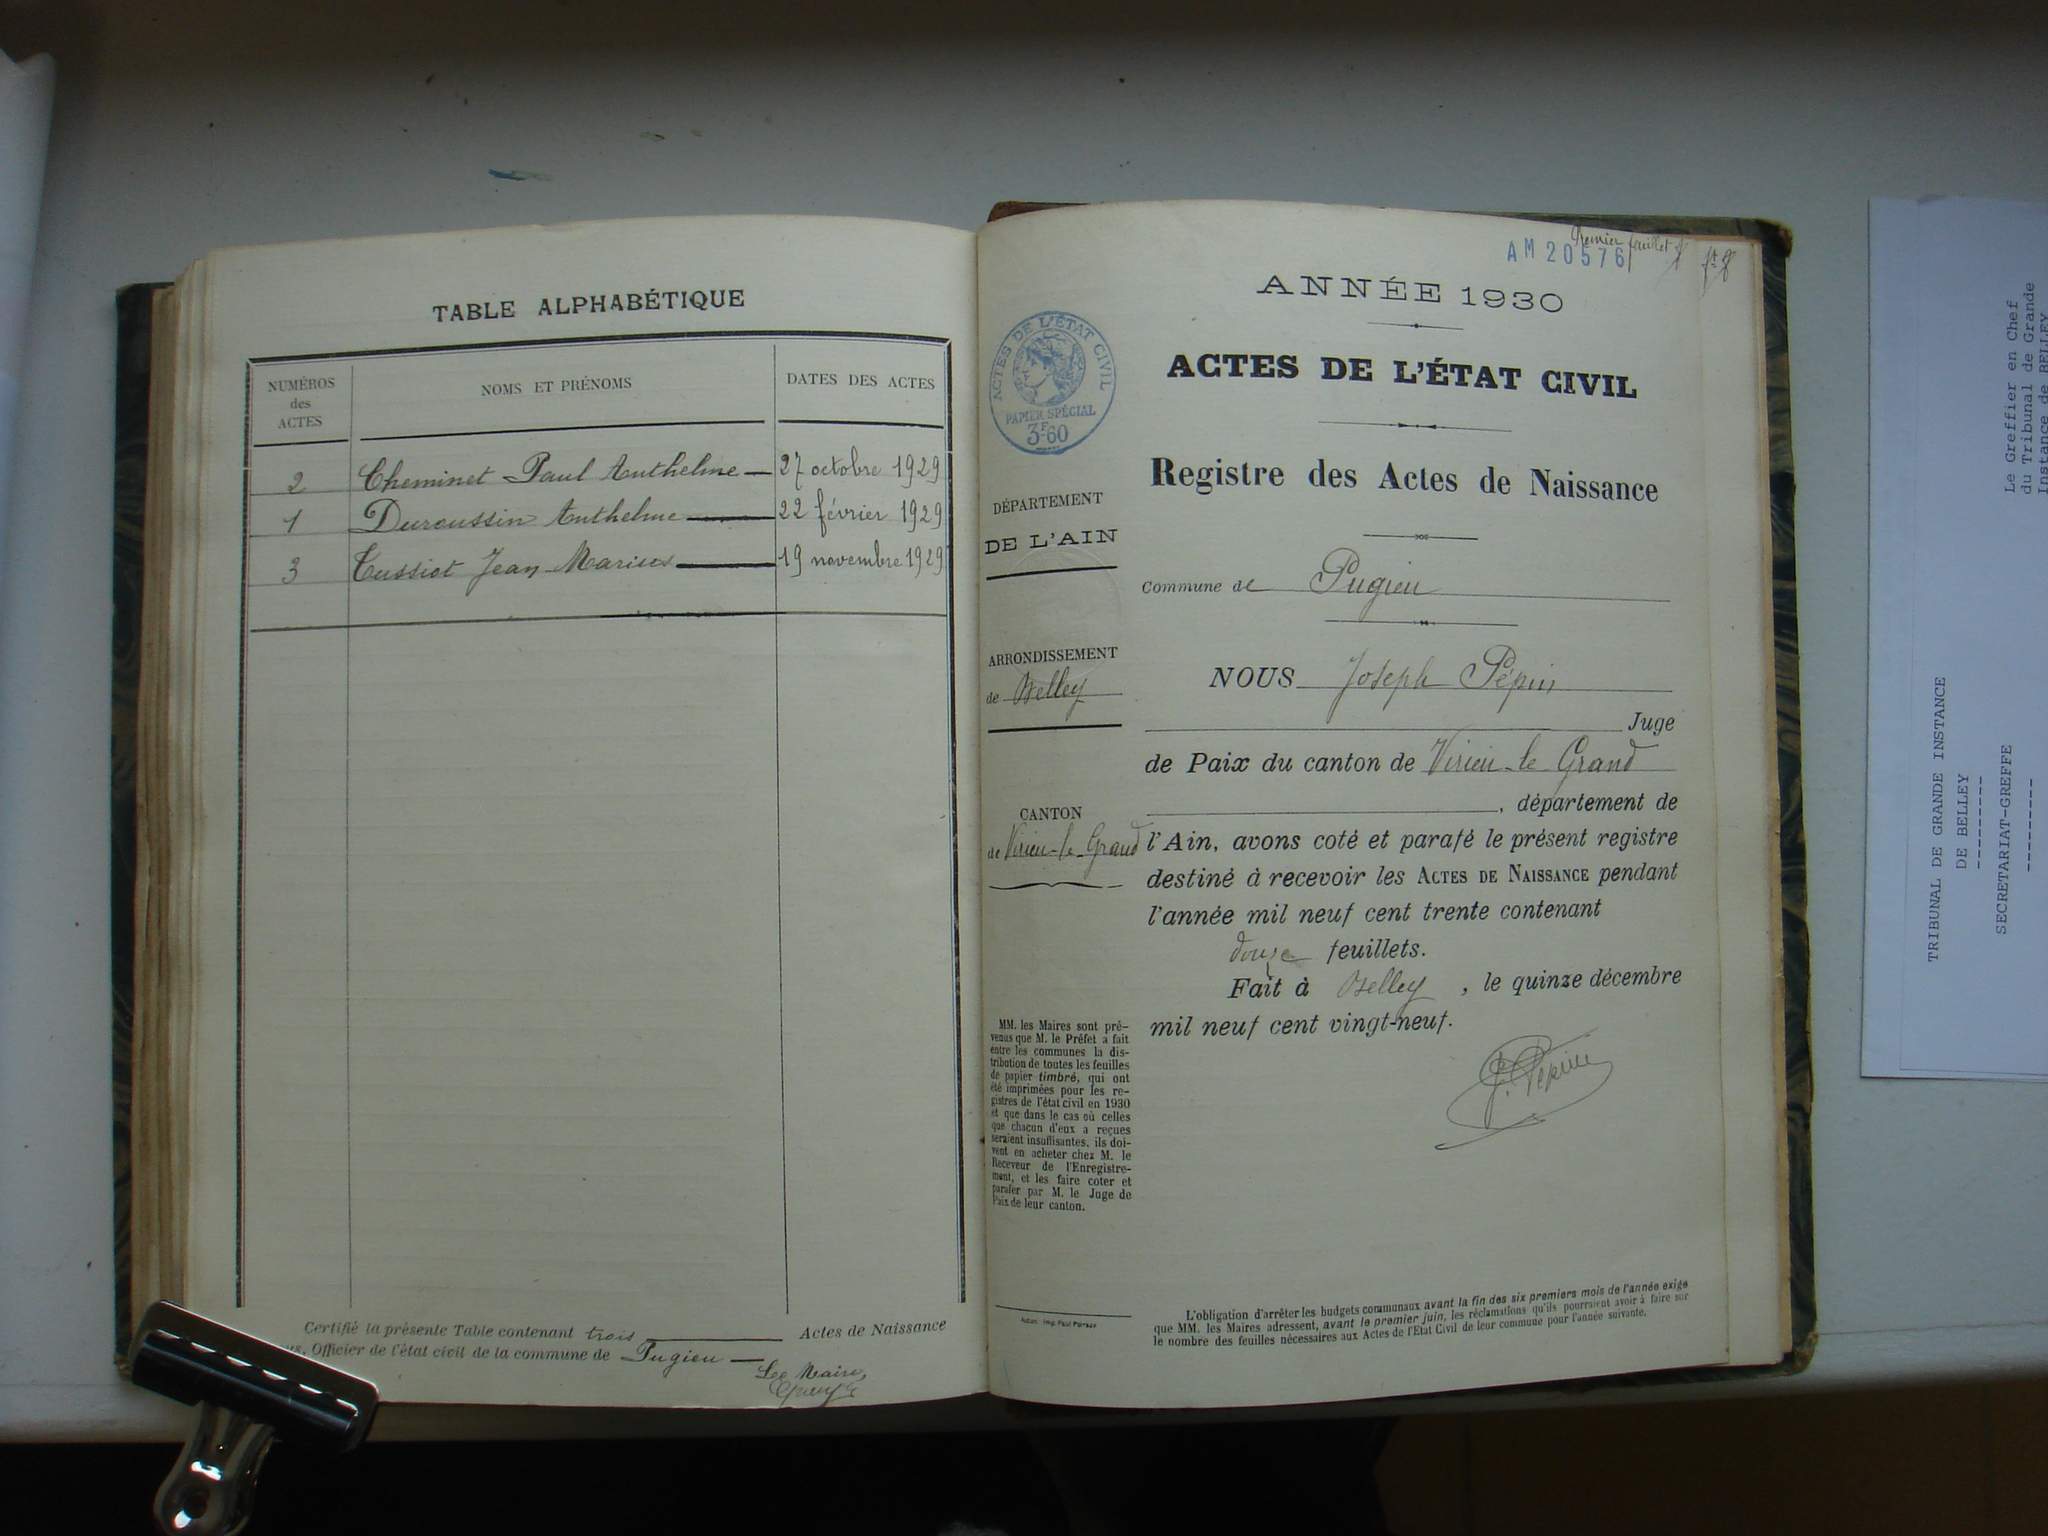 TABLE ALPHABÉTIQUE
NUMÉROS des ACTES
NOMS ET PRÉNOMS
DATES DES ACTES
2 Cheminet Paul Anthelme 27 octobre 1929
1 Duroussin Anthelme 22 février 1929
3 Tussiot Jean Marius 19 novembre 1929
Certifié la présente Table contenant trois Actes de Naissance
Officier de l'état civil de la commune de Pugieu
Le Maire,
Premier feuillet
AM 20576
ANNÉE 1930
ACTES DE L'ÉTAT CIVIL
PAPIER SPÉCIAL
3F60
ACTES DE L'ÉTAT CIVIL
Registre des Actes de Naissance
DÉPARTEMENT
DE L'AIN
Commune de Pugieu
ARRONDISSEMENT
de Belley
NOUS Joseph Pépin
Juge
de Paix du canton de Virieu-le-Grand
, département de
CANTON
de Virieu-le-Grand
l'Ain, avons coté et parafé le présent registre
destiné à recevoir les ACTES DE NAISSANCE pendant
l'année mil neuf cent trente contenant
douze feuillets.
Fait à Belley, le quinze décembre
mil neuf cent vingt-neuf.
J. Pépin
MM. les Maires sont pré-
venus que M. le Préfet a fait
entre les communes la dis-
tribution de toutes les feuilles
de papier timbré, qui ont
été imprimées pour les re-
gistres de l'état civil en 1930
et que dans le cas où celles
que chacun d'eux a reçues
seraient insuffisantes, ils doi-
vent en acheter chez M. le
Receveur de l'Enregistre-
ment, et les faire coter et
parafer par M. le Juge de
Paix de leur canton.
L'obligation d'arrêter les budgets communaux avant la fin des six premiers mois de l'année exige
que MM. les Maires adressent, avant le premier juin, les réclamations qu'ils pourraient avoir à faire sur
le nombre des feuilles nécessaires aux Actes de l'Etat Civil de leur commune pour l'année suivante.
TRIBUNAL DE GRANDE INSTANCE
DE BELLEY
---------
SECRETARIAT-GREFFE
----------
Le Greffier en Chef
du Tribunal de Grande
Instance de BELLEY